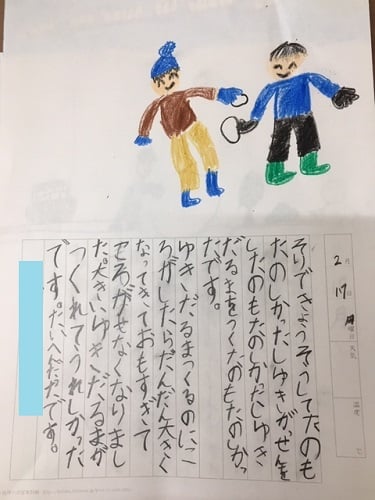 2月17日 曜日 天気 温度 ℃
そりできょうそうしてたのも
たのしかったしゆきがせんを
したのもたのしかったしゆき
だるまをつくたのもたのしかっ
たです。
ゆきだるまつくるのにこ
ろがしたらだんだん大きく
なってきておもすぎて
ころがせなくなりまし
た。大きいゆきだるまが
つくれてうれしかった
です。